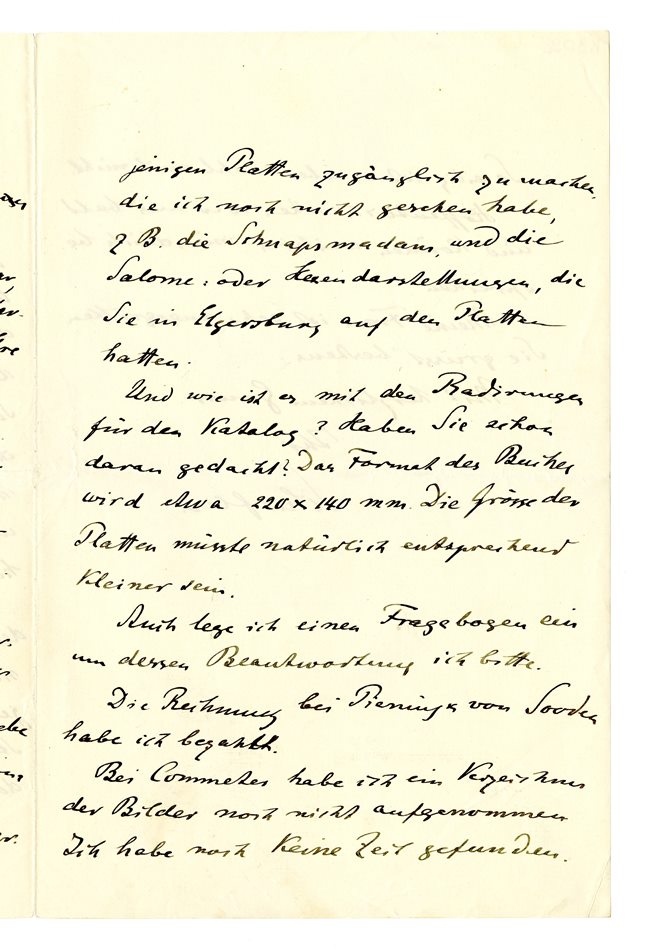 jenigen Platten zugänglich zu machen,
die ich noch nicht gesehen habe,
z B. die Schnapsmadam, und die
Salome: oder Hexendarstellungen, die
Sie in Elgersburg auf den Platten
hatten.
Und wie ist es mit den Radirungen
für den Katalog? Haben Sie schon
daran gedacht? Das Format des Buches
wird etwa 220 x 140 mm. Die Grösse der
Platten müsste natürlich entsprechend
kleiner sein.
Auch lege ich einen Fragebogen ein
um dessen Beantwortung ich bitte.
Die Rechnung bei Piening von Sooden
habe ich bezahlt.
Bei Commeter habe ich ein Verzeichnis
der Bilder noch nicht aufgenommen
Ich habe noch keine Zeit gefunden.